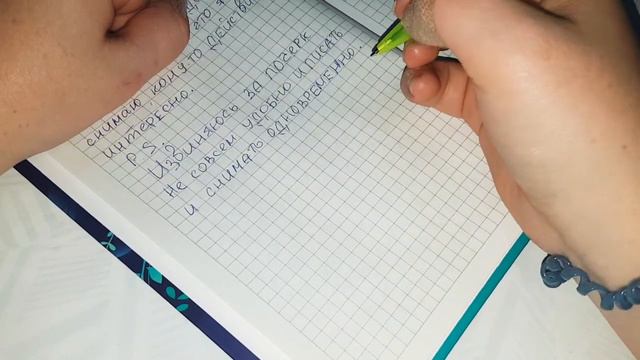 это я
снимаю, кому-то действи
интересно.
P.S.
Извиняюсь за почерк
не совсем удобно и писать
и снимато одновременно.